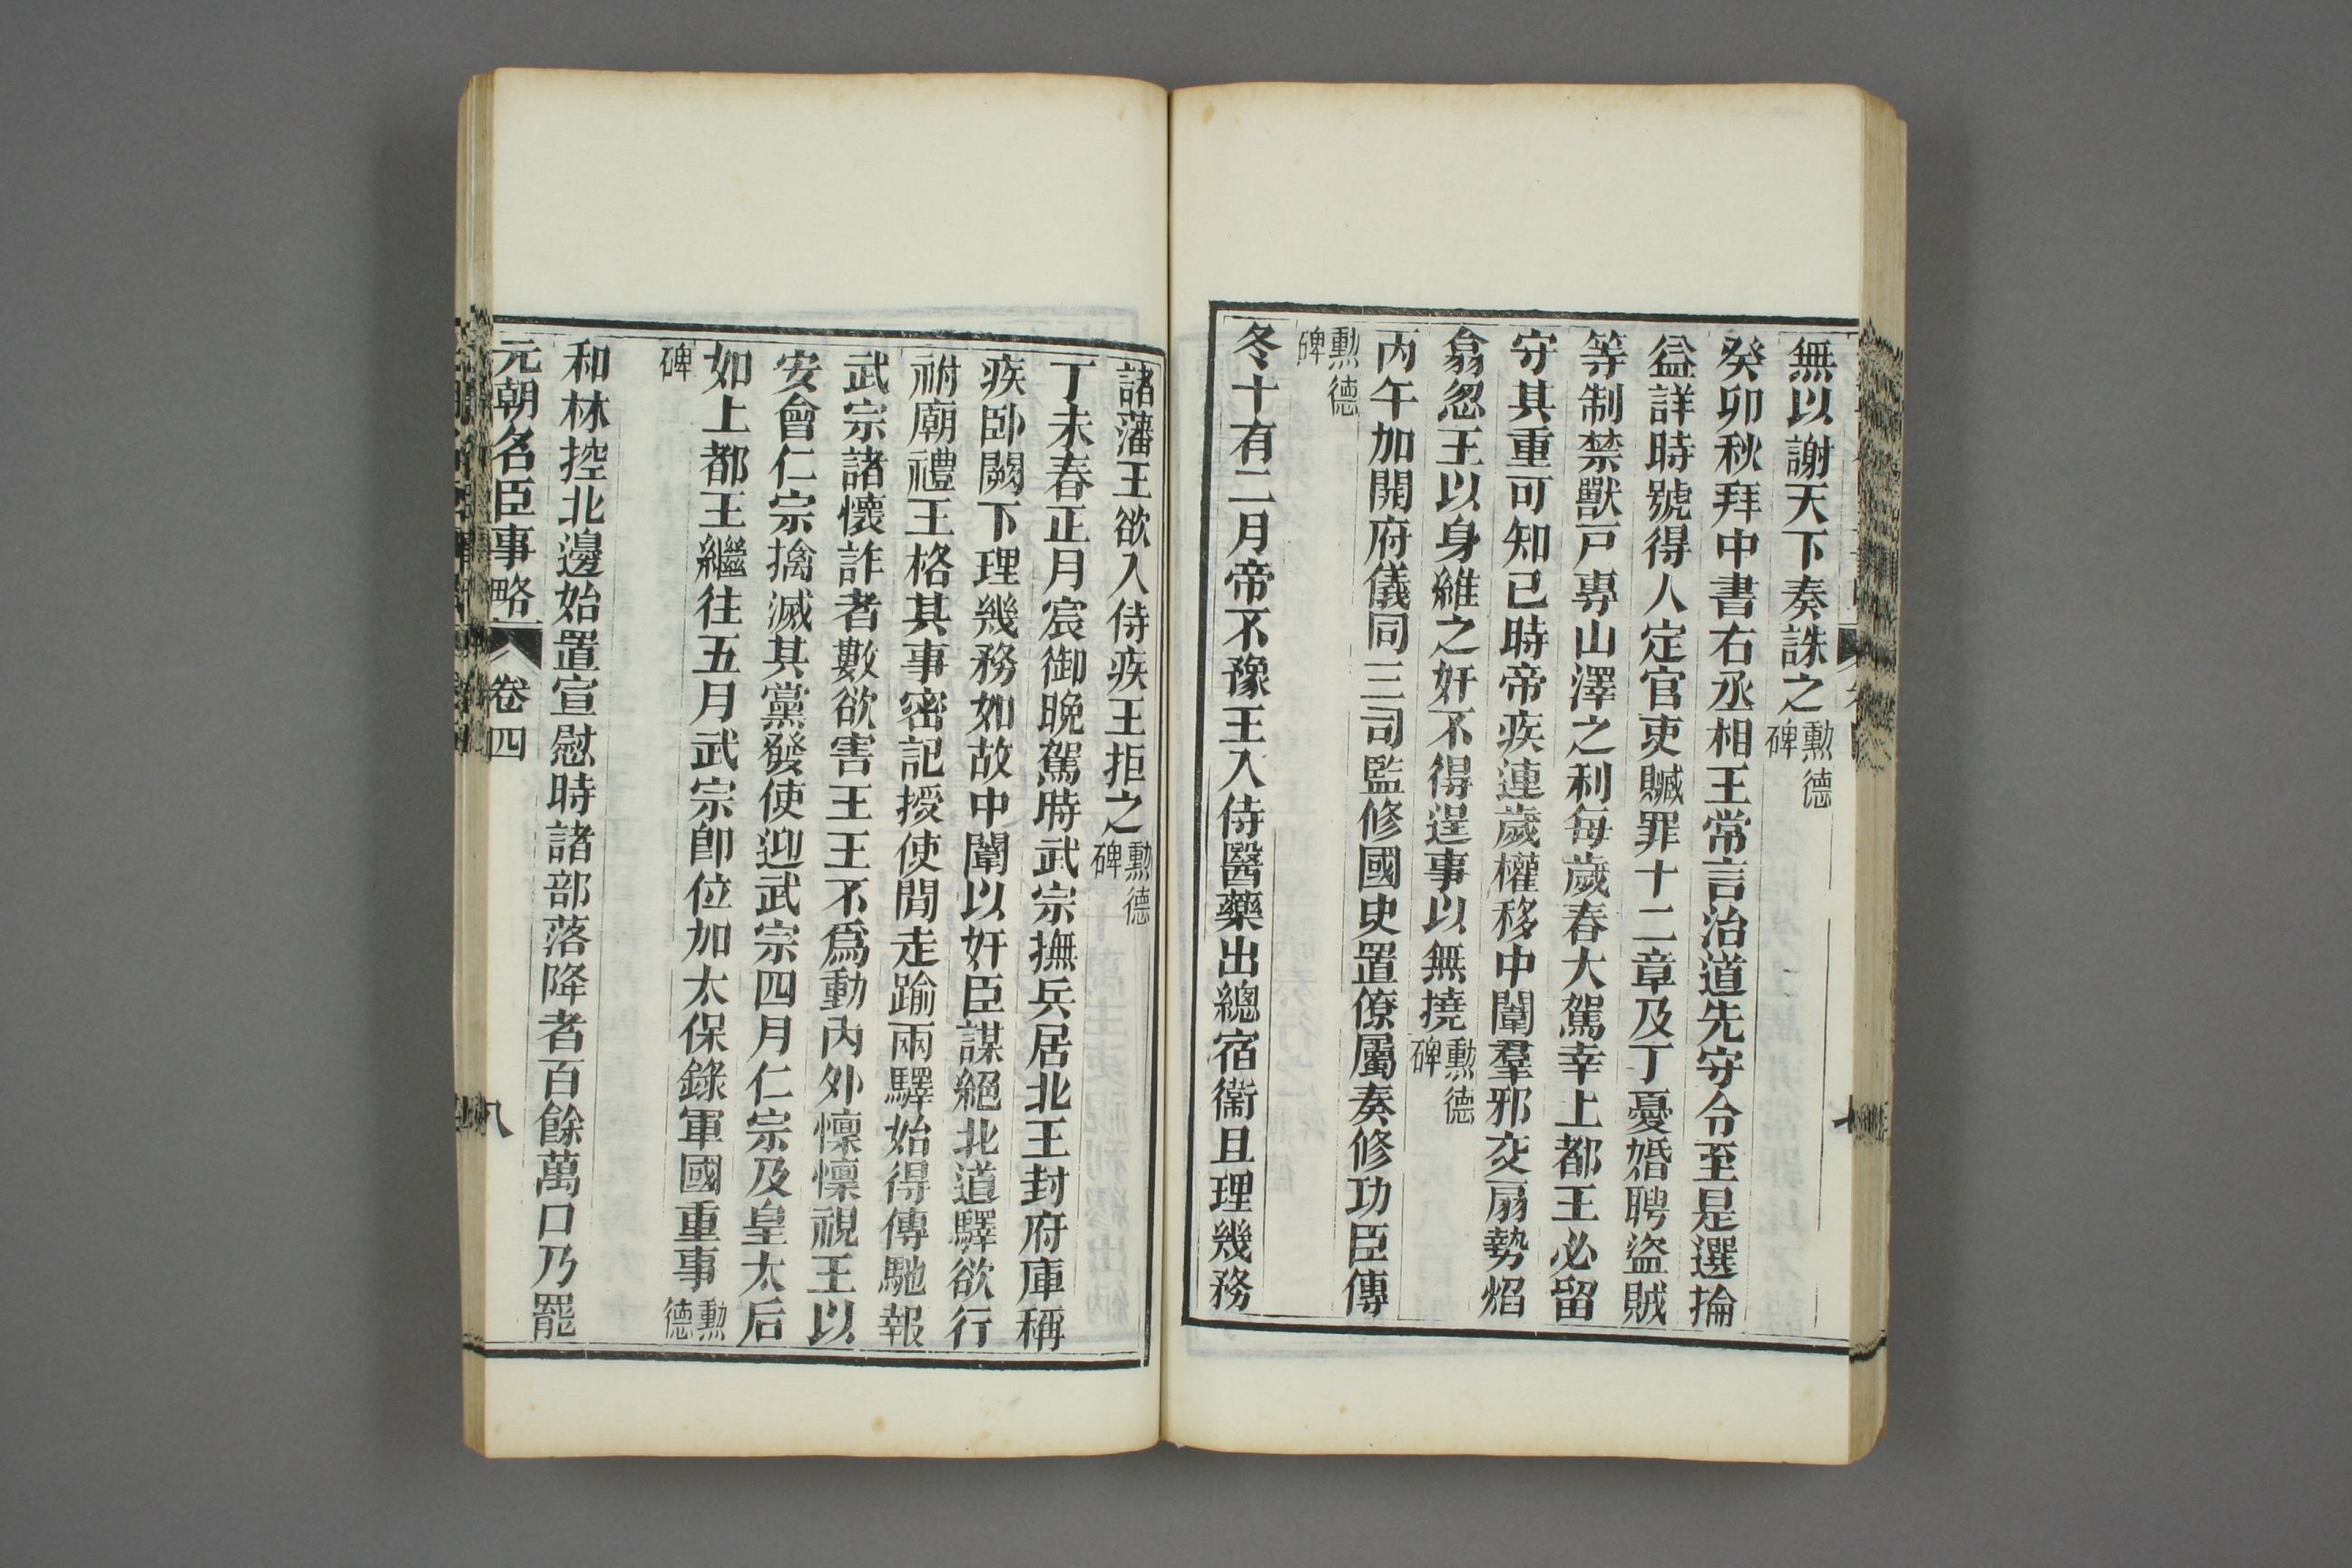 無以謝天下奏誅之勲德碑
癸卯秋拜中書右丞相王常言治道先守令至是選掄
益詳時號得人定官吏贓罪十二章及丁憂婚聘盜賊
等制禁獸戸專山澤之利每歲春大駕幸上都王必留
守其重可知已時帝疾連歲權移中闈羣邪交扇勢焰
翕忽王以身維之奸不得逞事以無撓勲德碑
丙午加開府儀同三司監修國史置僚屬奏修功臣傳
勲德碑
冬十有二月帝不豫王入侍醫藥出總宿衞且理幾務
諸藩王欲入侍疾王拒之勲德碑
丁未春正月宸御晚駕時武宗撫兵居北王封府庫稱
疾卧闕下理幾務如故中闈以奸臣謀絕北道驛欲行
祔廟禮王格其事密記授使閒走踰兩驛始得傳馳報
武宗諸懷詐者數欲害王王不爲動內外懍懍視王以
安會仁宗擒滅其黨發使迎武宗四月仁宗及皇太后
如上都王繼往五月武宗卽位加太保錄軍國重事勲德
碑
和林控北邊始置宣慰時諸部落降者百餘萬口乃罷
元朝名臣事略 卷四 八